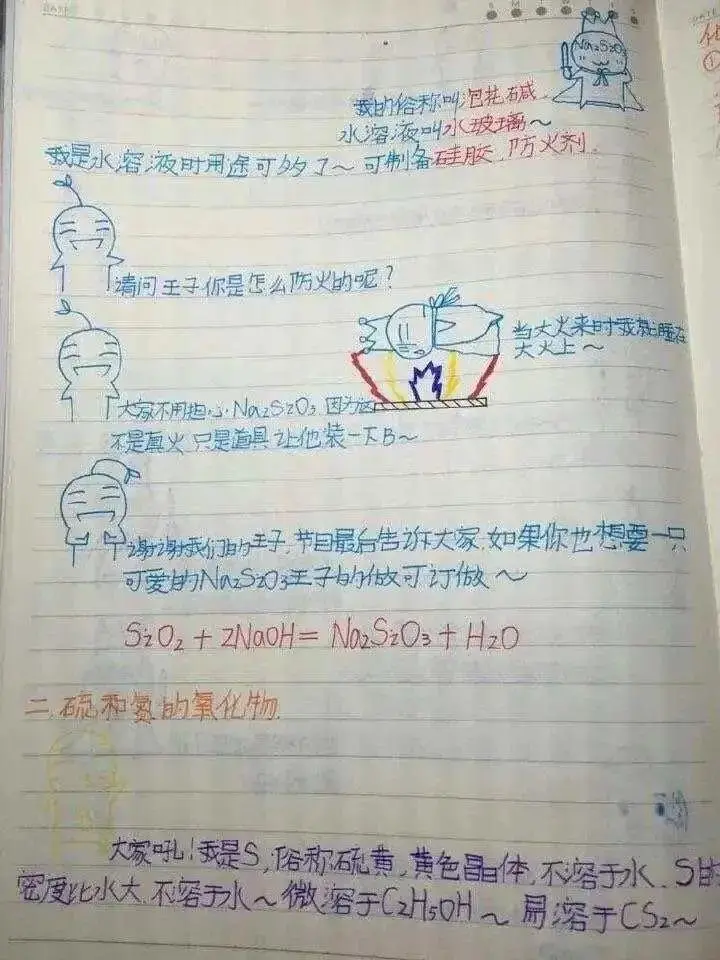 DATE
S M
DATE
Na2SiO3
我的俗称叫泡花碱
水溶液叫水玻璃~
我是水溶液时用途可多了~可制备硅胶.防火剂.
请问王子你是怎么防火的呢?
当大火来时我就睡在
大火上~
大家不用担心Na2SiO3因为这
不是真火只是道具让他装一下B~
谢谢我们的王子,节目最后告诉大家.如果你也想要一只
可爱的Na2SiO3王子的做可订做~
SiO2+2NaOH=Na2SiO3+H2O
二.硫和氮的氧化物.
大家吼!我是S,俗称硫黄,黄色晶体,不溶于水.S的
密度比水大.不容于水~微溶于C2H5OH~易溶于CS2~
①